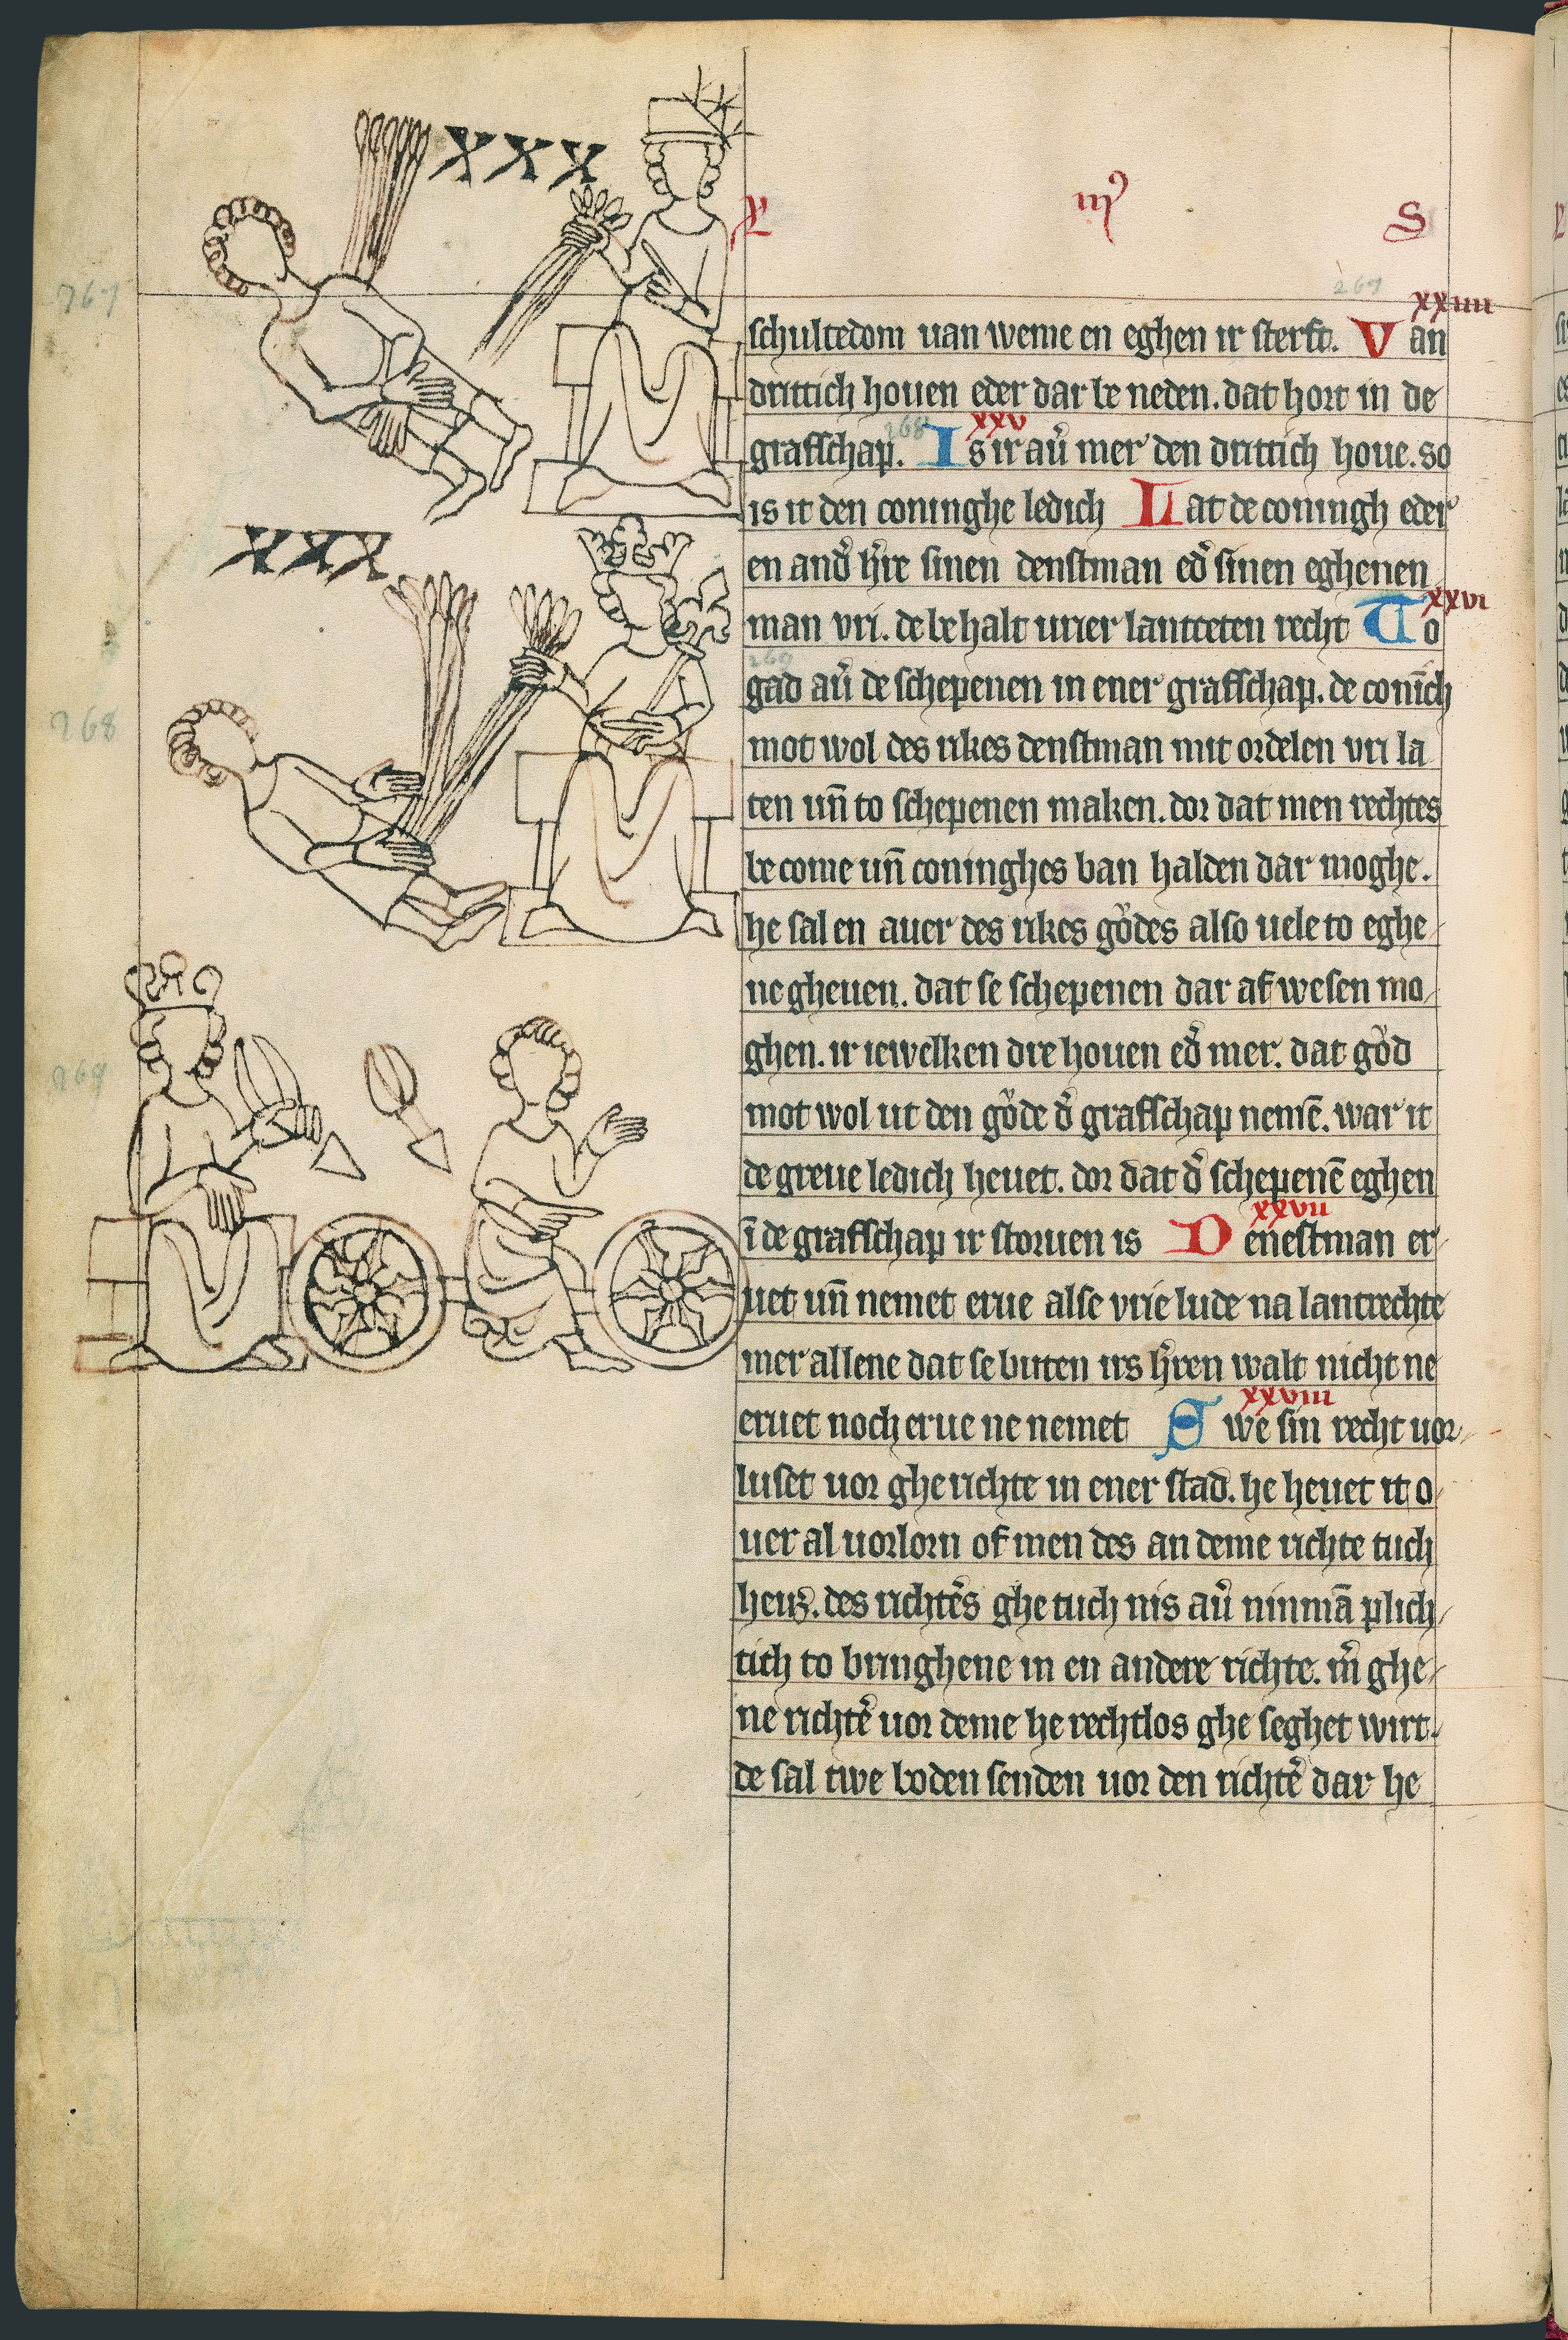 XXX
L iiiꝰ S
267 267
xxiiii
schultedom uan weme en eghen ir sterft. Van
drittich houen eder dar be neden. dat hort in de
268 xxv
grafschap. Is ir au̓ mer den drittich houe. so
is it den coninghe ledich Lat de coningh eder
XXX
en and̓ h̓re sinen denstman ed̓ sinen eghenen
xxvi
man vri. de be halt urier lantseten recht To
269
268
gad au̓ de schepenen in ener grafschap. de conīch
mot wol des rikes denstman mit ordelen vri la
ten un̄ to schepenen maken. dor dat men rechtes
be come un̄ coninghes ban halden dar moghe.
he sal en auer des rikes gůdes also uele to eghe/
ne gheuen. dat se schepenen dar af wesen mo/
269
ghen. ir iewelken dre houen ed̓ mer. dat gůd
mot wol ut den gůde d̓ grafschap nemē. war it
de greue ledich heuet. dor dat d̓ schepenē eghen
xxvii
ī de grafschap ir storuen is Denestman er/
uet un̄ nemet erue alse vrie lude na lantrechte
mer allene dat se buten irs h̓ren walt nicht ne
xxviii
eruet noch erue ne nemet Swe sin recht uor/
luset uor gherichte in ener stad. he heuet it o/
uer al uorlorn of men des an deme richte tuch
heuꝫ. des richt̓es ghe tuch nis au̓ ninmā plich/
tich to bringhene in en andere richte. m̓ ghe/
ne richt̓e uor deme he rechtlos ghe seghet wirt.
de sal twe boden senden uor den richt̓e dar he